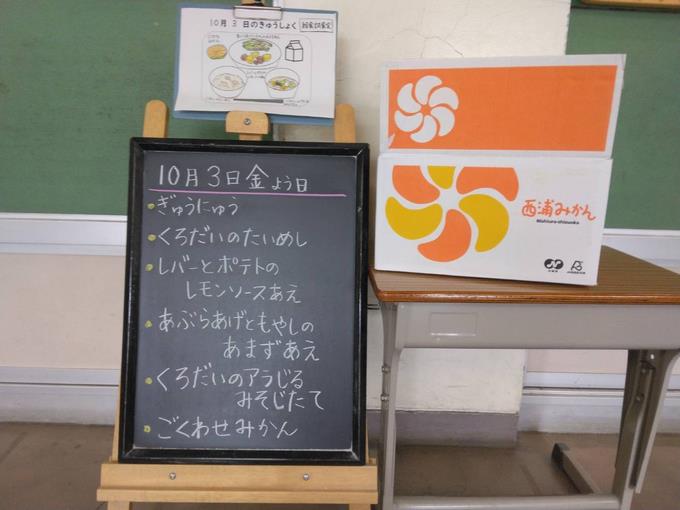 10月 3 日のきゅうしょく
10月3日金よう日
ぎゅうにゅう
くろだいのたいめし
レバーとポテトの
レモンソースあえ
あぶらあげともやしの
あまずあえ
くろだいのアラじる
みそじたて
ごくわせみかん
西浦みかん
Nishiura-shizuoka